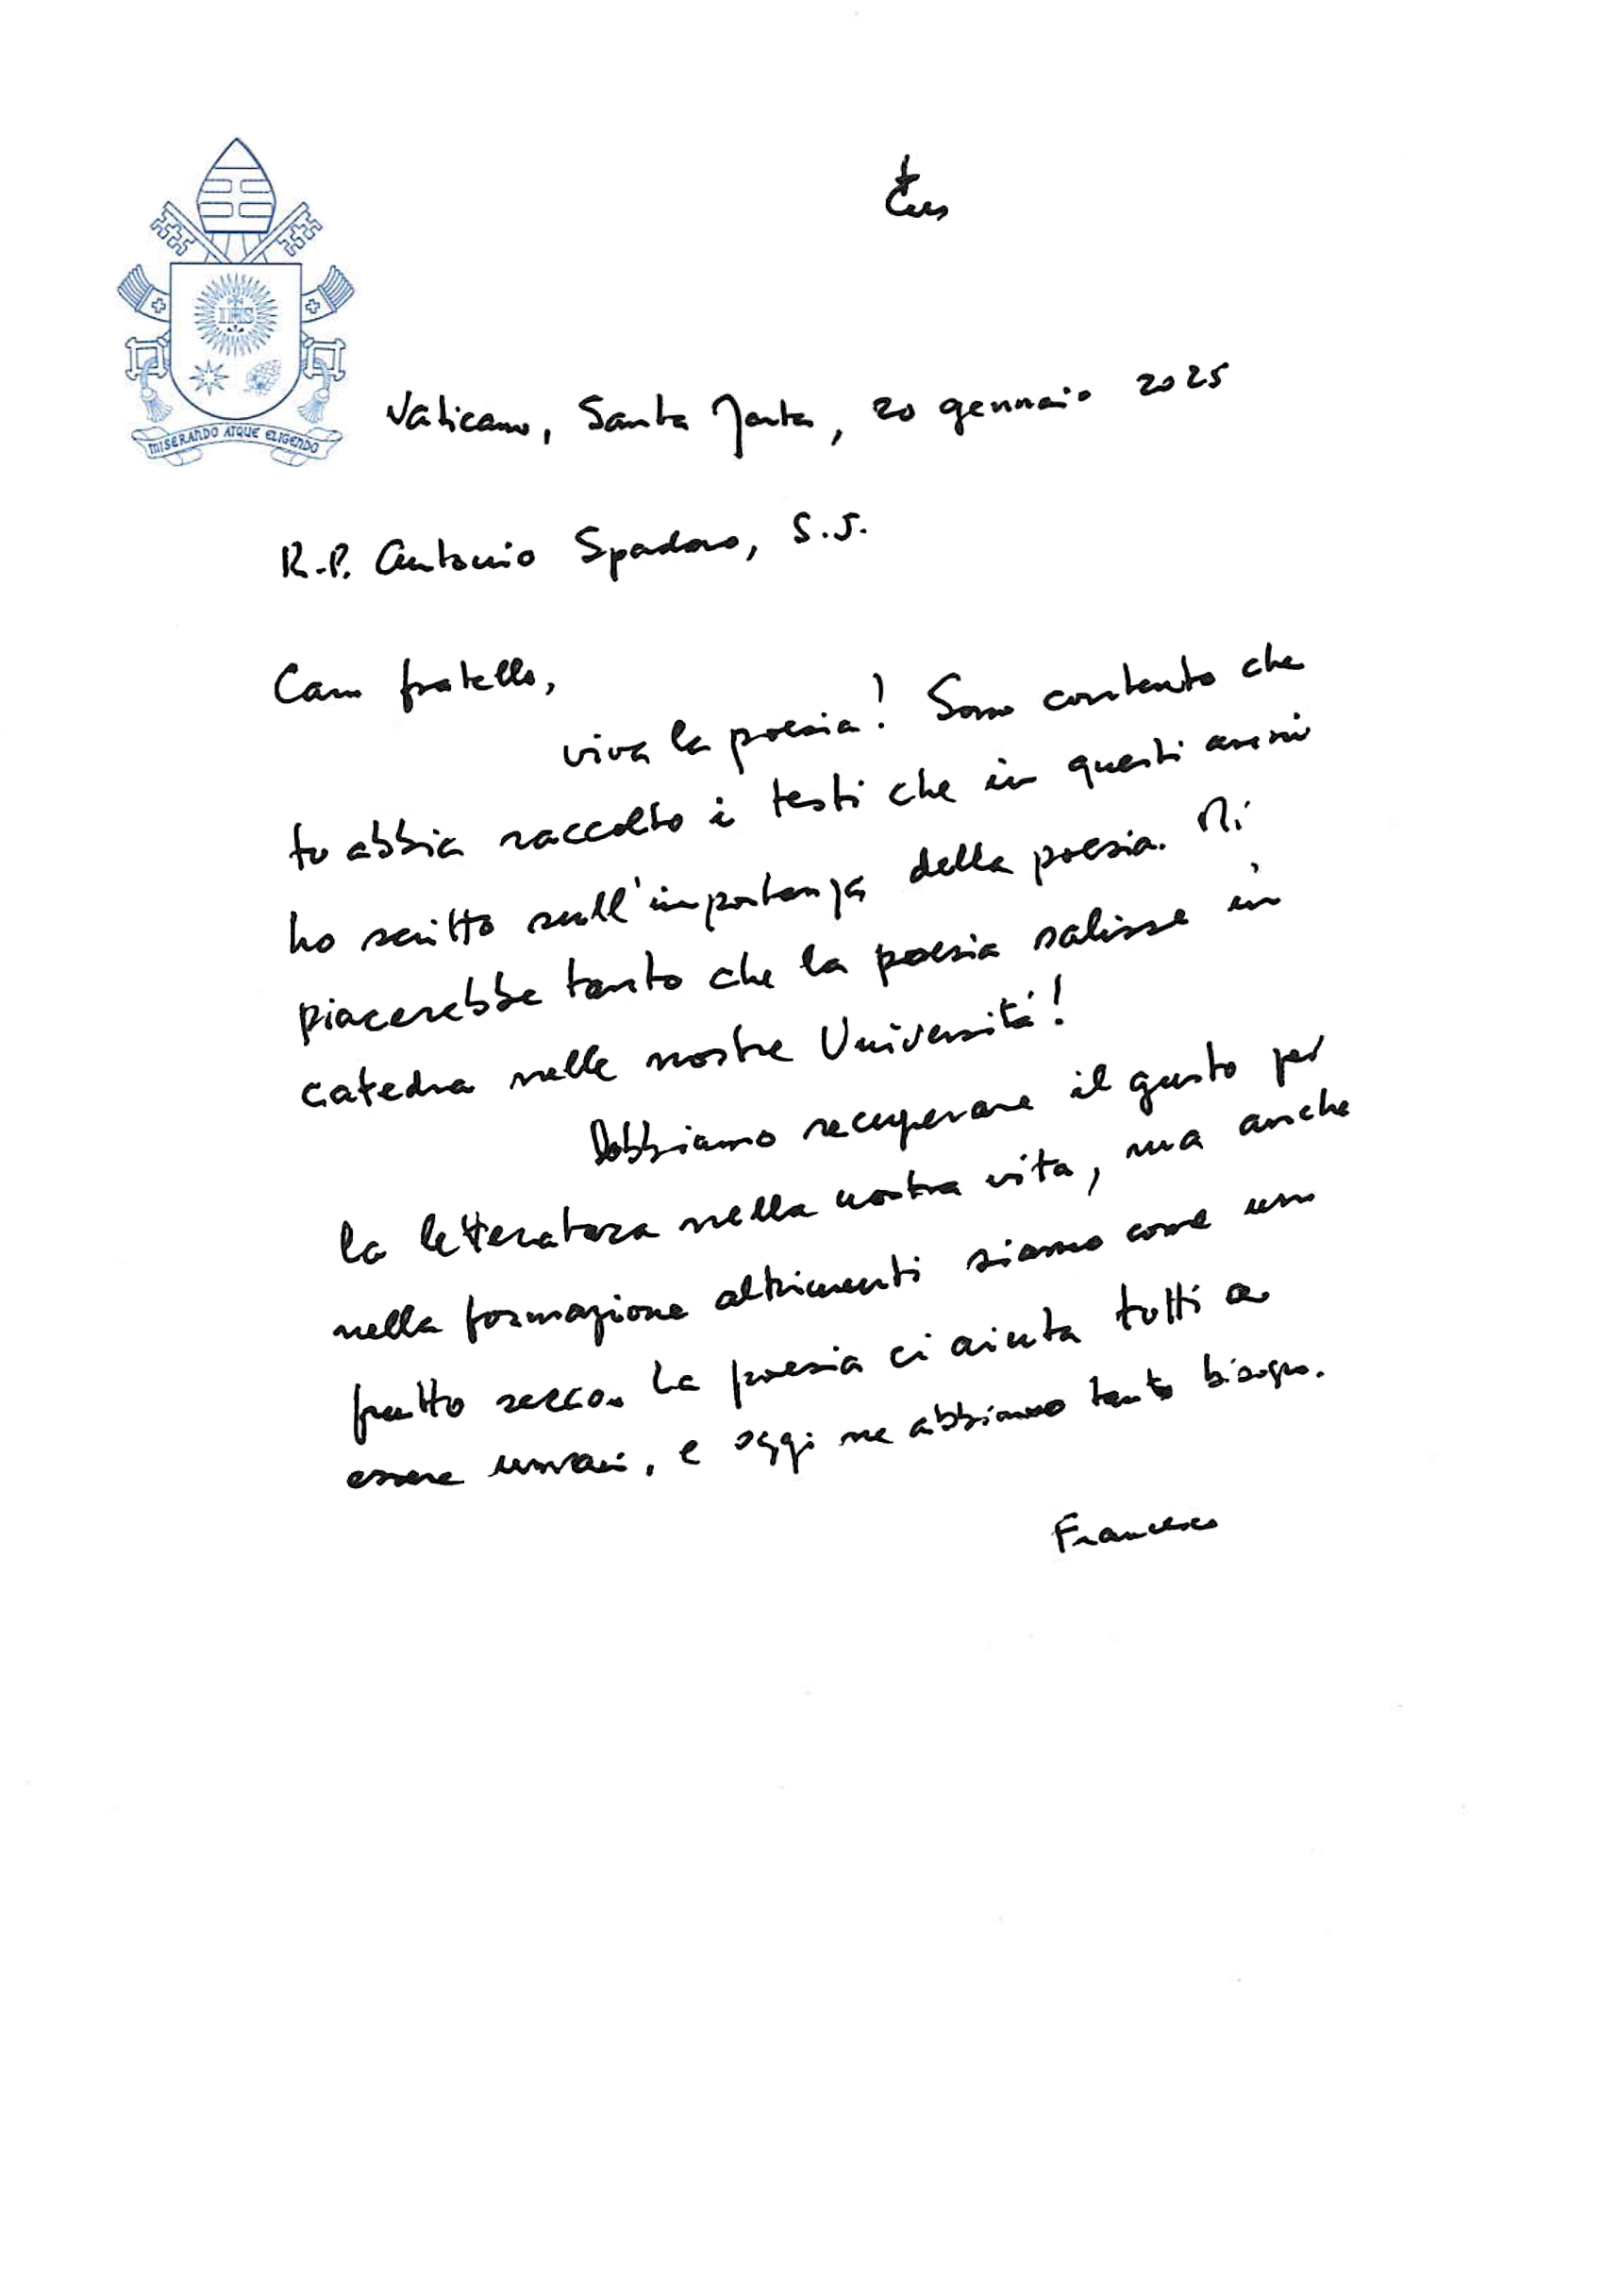 IHS
MISERANDO ATQUE ELIGENDO
Vaticano, Santa Marta, 20 gennaio 2025
R.P. Antonio Spadaro, S.J.
Caro fratello,
viva la poesia! Sono contento che
tu abbia raccolto i testi che in questi anni
ho scritto sull'importanza della poesia. Mi
piacerebbe tanto che la poesia salisse in
catedra nelle nostre Università!
Dobbiamo recuperare il gusto per
la letteratura nella nostra vita, ma anche
nella formazione altrimenti siamo come un
frutto secco. La poesia ci aiuta tutti a
essere umani, e oggi ne abbiamo tanto bisogno.
Francesco